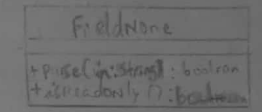 FieldNone
+ parse(in: String) : boolean
+ isReadOnly() : boolean